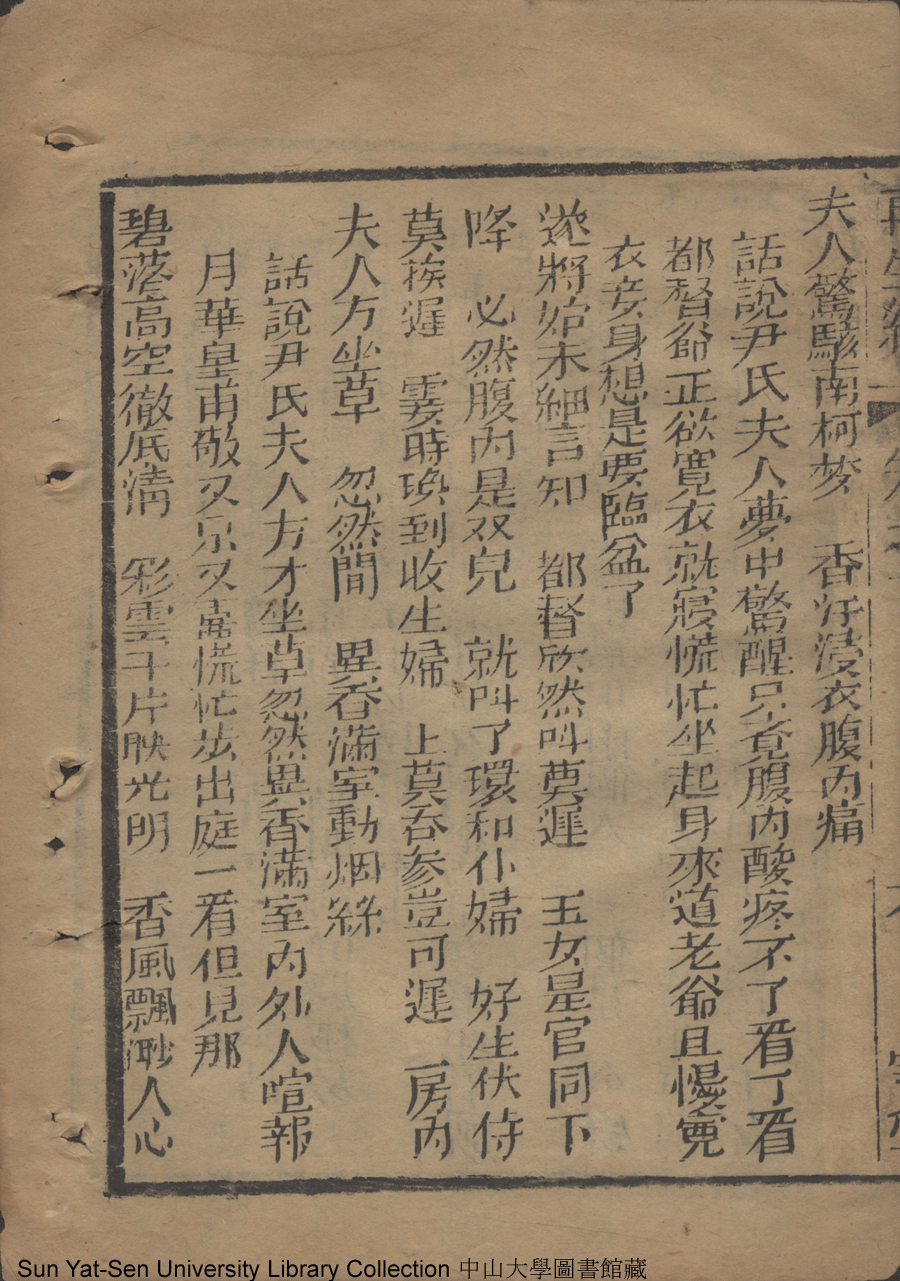 再生緣
夫人驚駭南柯梦 香汗浸衣腹内痛
話說尹氏夫人夢中驚醒只覔腹内酸疼不了看了看
都督爺正欲寬衣就寢慌忙坐起身來道老爺且慢寛
衣妾身想是要臨盆了
遂將始末細言知 都督欣然叫莫遲 玉女星官同下
降 必然腹内是双兒 就叫了環和仆婦 好生伏侍
莫挨遲 霎時喚到收生婦 上莫吞参豈可遲 房内
夫人方坐草 忽然間 異香滿室動烟絲
話說尹氏夫人方才坐草忽然異香滿室内外人喧報
月華皇甫敬又又喜慌忙步出庭一看但見那
碧落高空徹底清 彩雲千片映光明 香風飄渺人心
Sun Yat-Sen University Library Collection 中山大學圖書館藏